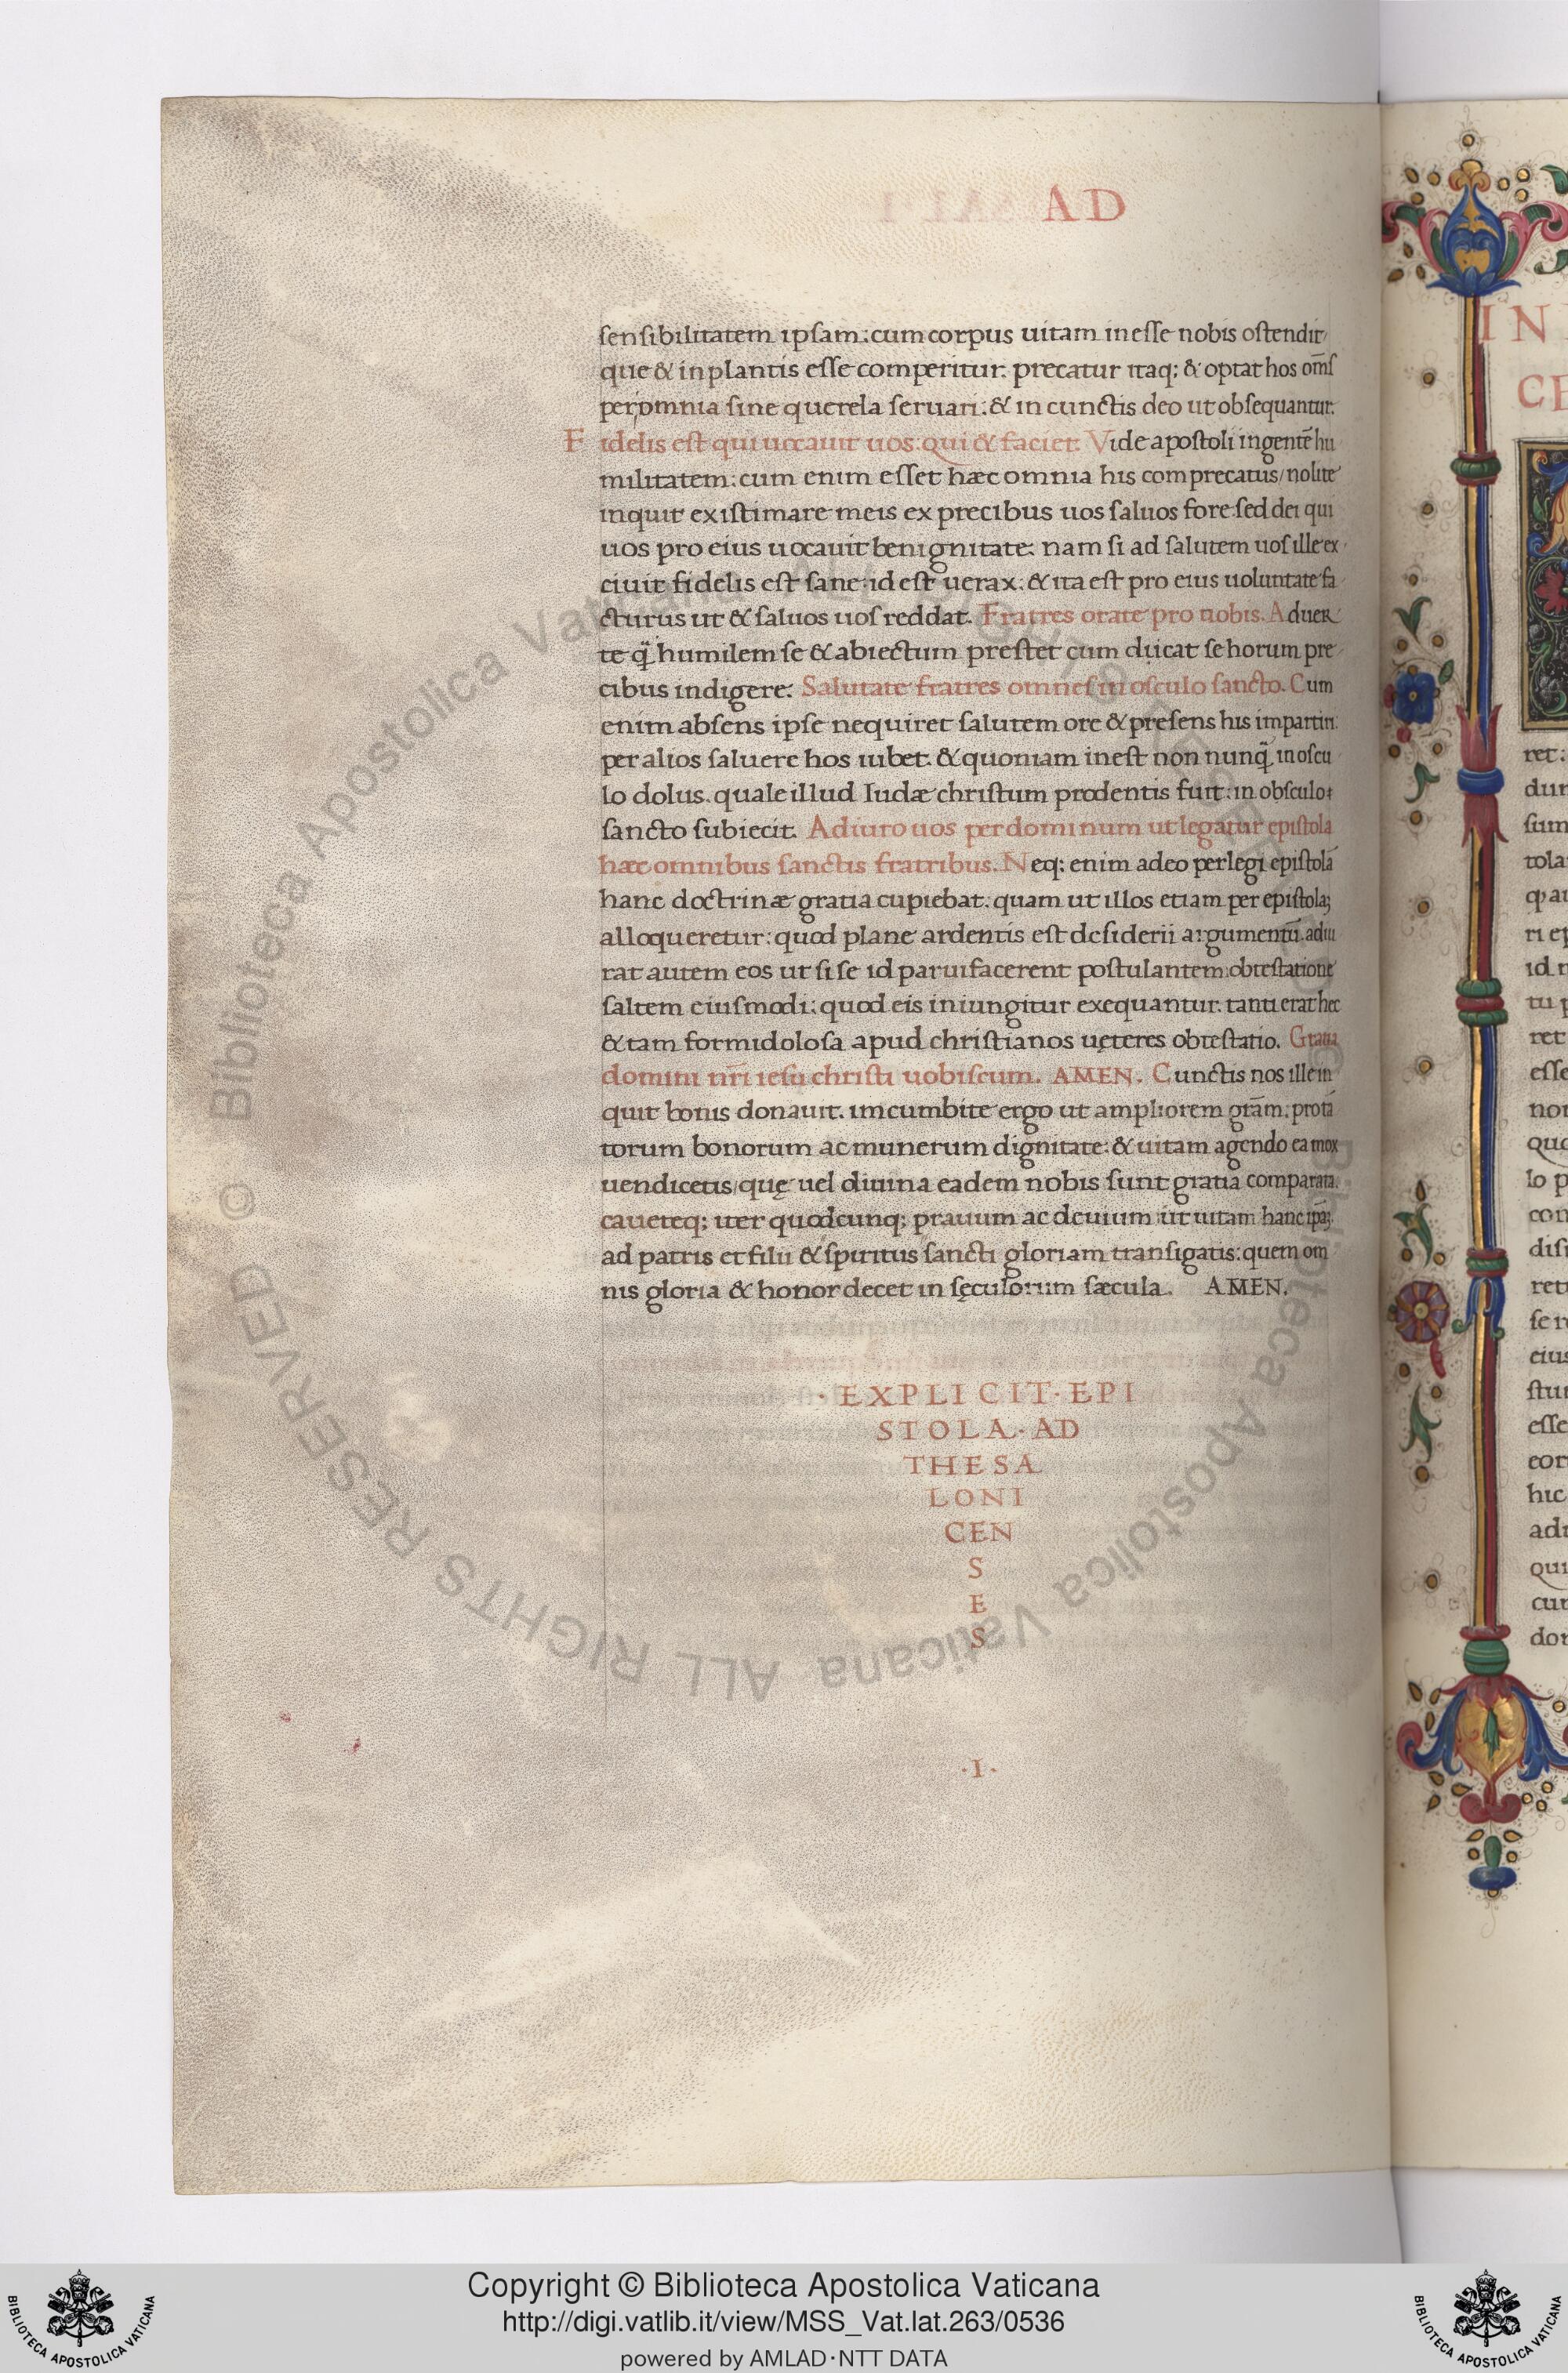 AD
sensibilitatem ipsam: cum corpus uitam inesse nobis ostendit/
que & in plantis esse comperitur. precatur itaq; & optat hos om̄s
per omnia sine querela seruari: & in cunctis deo ut obsequantur.
Fidelis est qui uocauit uos: qui & faciet. Vide apostoli ingentē hu
militatem: cum enim esset hæc omnia his comprecatus/ nolite
inquit existimare meis ex precibus uos saluos fore: sed dei qui
uos pro eius uocauit benignitate: nam si ad salutem uos ille ex
ciuit fidelis est sane: id est uerax: & ita est pro eius uoluntate fa
cturus ut & saluos uos reddat. Fratres orate pro nobis. Aduer
te q̃ humilem se & abiectum prestet cum dicat se horum pre
cibus indigere. Salutate fratres omnes in osculo sancto. Cum
enim absens ipse nequiret salutem ore & presens his impartiri:
per alios saluere hos iubet. & quoniam inest non nunq̃ in oscu
lo dolus. quale illud Iudæ christum prodentis fuit: in obsculo
sancto subiecit. Adiuro uos per dominum ut legatur epistola
hæc omnibus sanctis fratribus. Neq; enim adeo perlegi epistolā
hanc doctrinæ gratia cupiebat. quam ut illos etiam per epistolaȝ
alloqueretur: quod plane ardentis est desiderii argumentū. adiu
rat autem eos ut si se id paruifacerent postulantem: obtestatione
saltem eiusmodi: quod eis iniungitur exequantur. tanti erat hec
& tam formidolosa apud christianos ueteres obtestatio. Gratia
domini nr̄i iesu christi uobiscum. AMEN. Cunctis nos ille in
quit bonis donauit. imcumbite ergo ut ampliorem grām: pro tā
torum bonorum ac munerum dignitate: & uitam agendo ea mox
uendicetis/ quę uel diuina eadem nobis sunt gratia comparata.
caueteq; iter quodcunq; prauum ac deuium ut uitam hanc ipāȝ
ad patris et filii & spiritus sancti gloriam transigatis: quem om
nis gloria & honor decet in sęculorum sæcula. AMEN.
· EXPLICIT · EPI
STOLA · AD
THESA
LONI
CEN
S
E
S
· I ·
IN
CE
ret:
dur
sum
tola
ri ep
id n
tu p
ret
esse
non
quo
lo p
con
dis
ret
se r
eius
stu
esse
eor
hic
adu
qui
cur
dor
© Biblioteca Apostolica Vaticana ALL RIGHTS RESERVED
Copyright © Biblioteca Apostolica Vaticana
http://digi.vatlib.it/view/MSS_Vat.lat.263/0536
powered by AMLAD·NTT DATA
BIBLIOTECA APOSTOLICA VATICANA
BIBLIOTECA APOSTOLICA VATICANA